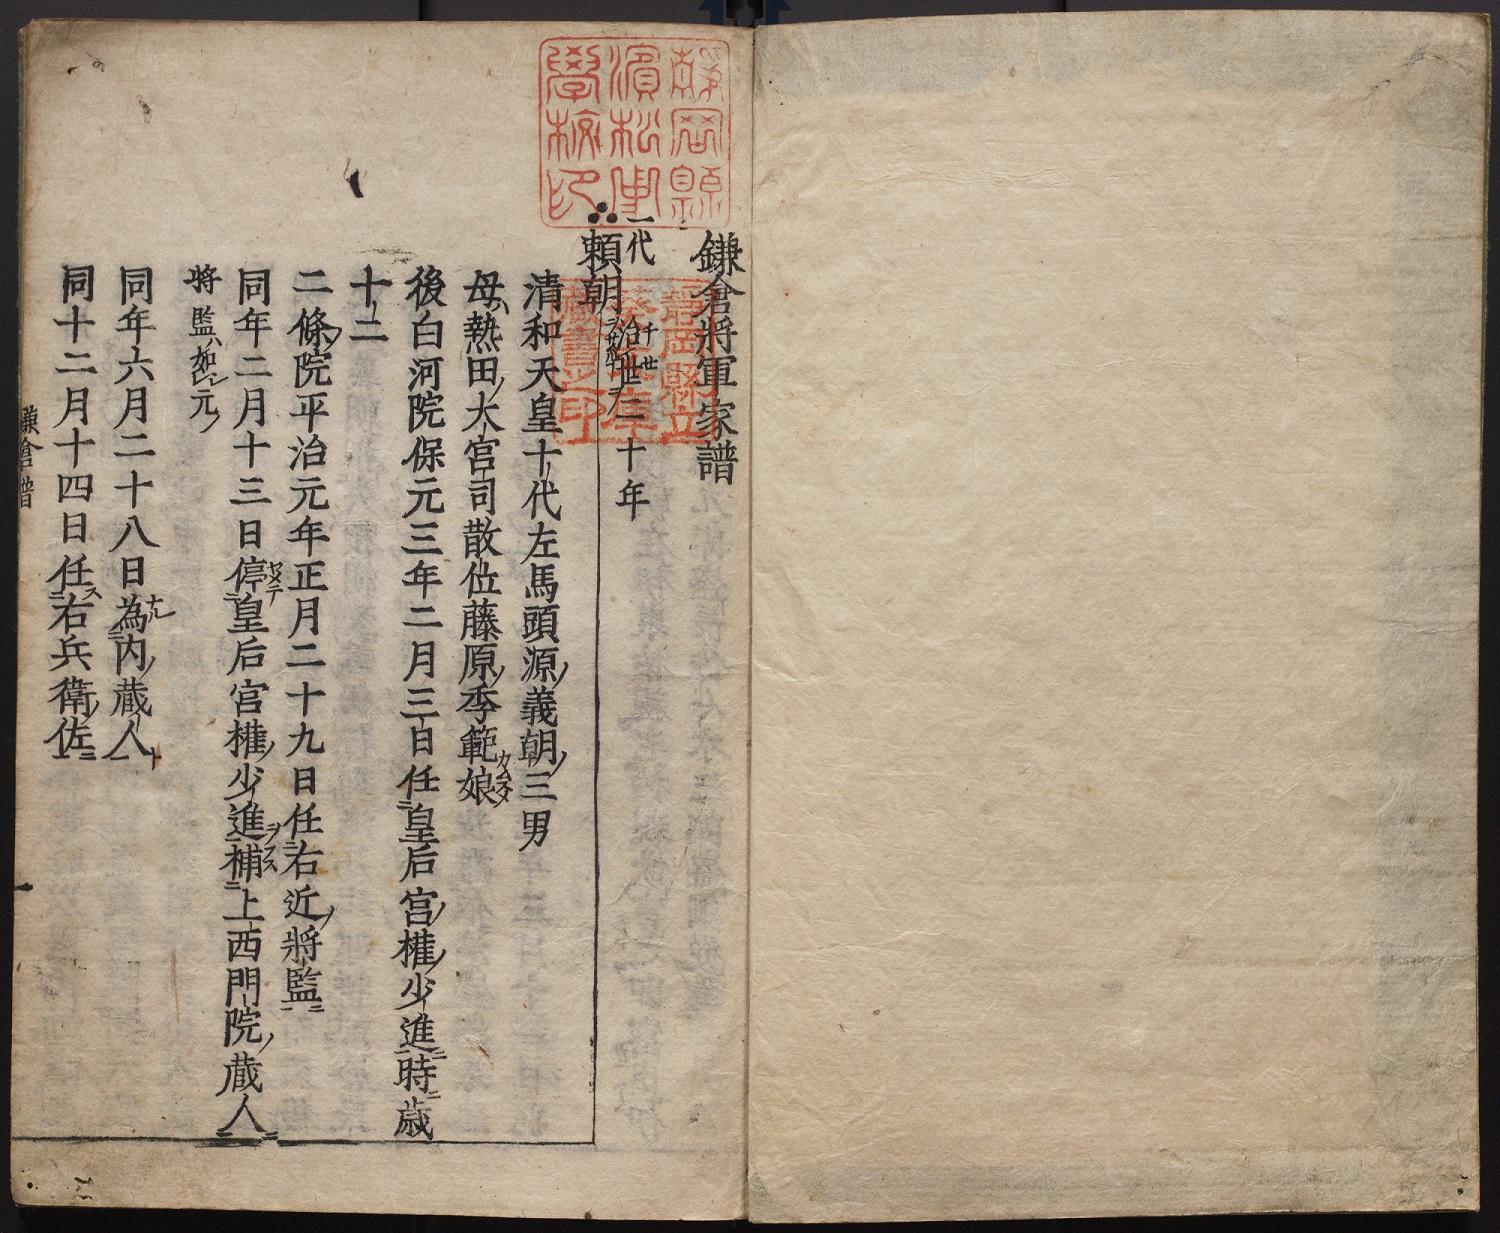 鎌倉將軍家譜
一代
頼朝 治世二十年
清和天皇十代左馬頭源ノ義朝ノ三男
母ハ熱田ノ大宮司散位藤原ノ季範娘
後白河院保元三年二月三日任皇后宮ノ權ノ少進時ニ歳
十二
二條ノ院平治元年正月二十九日任右近ノ將監ニ
同年二月十三日停皇后宮權ノ少進補上西門院ノ蔵人ニ
將監ハ如シ元ノ
同年六月二十八日為ル内ノ蔵人ト
同十二月十四日任ス右兵衛ノ佐ニ
鎌倉譜
靜岡縣
濱松中
學校印
靜岡縣立
葵文庫
藏書之印